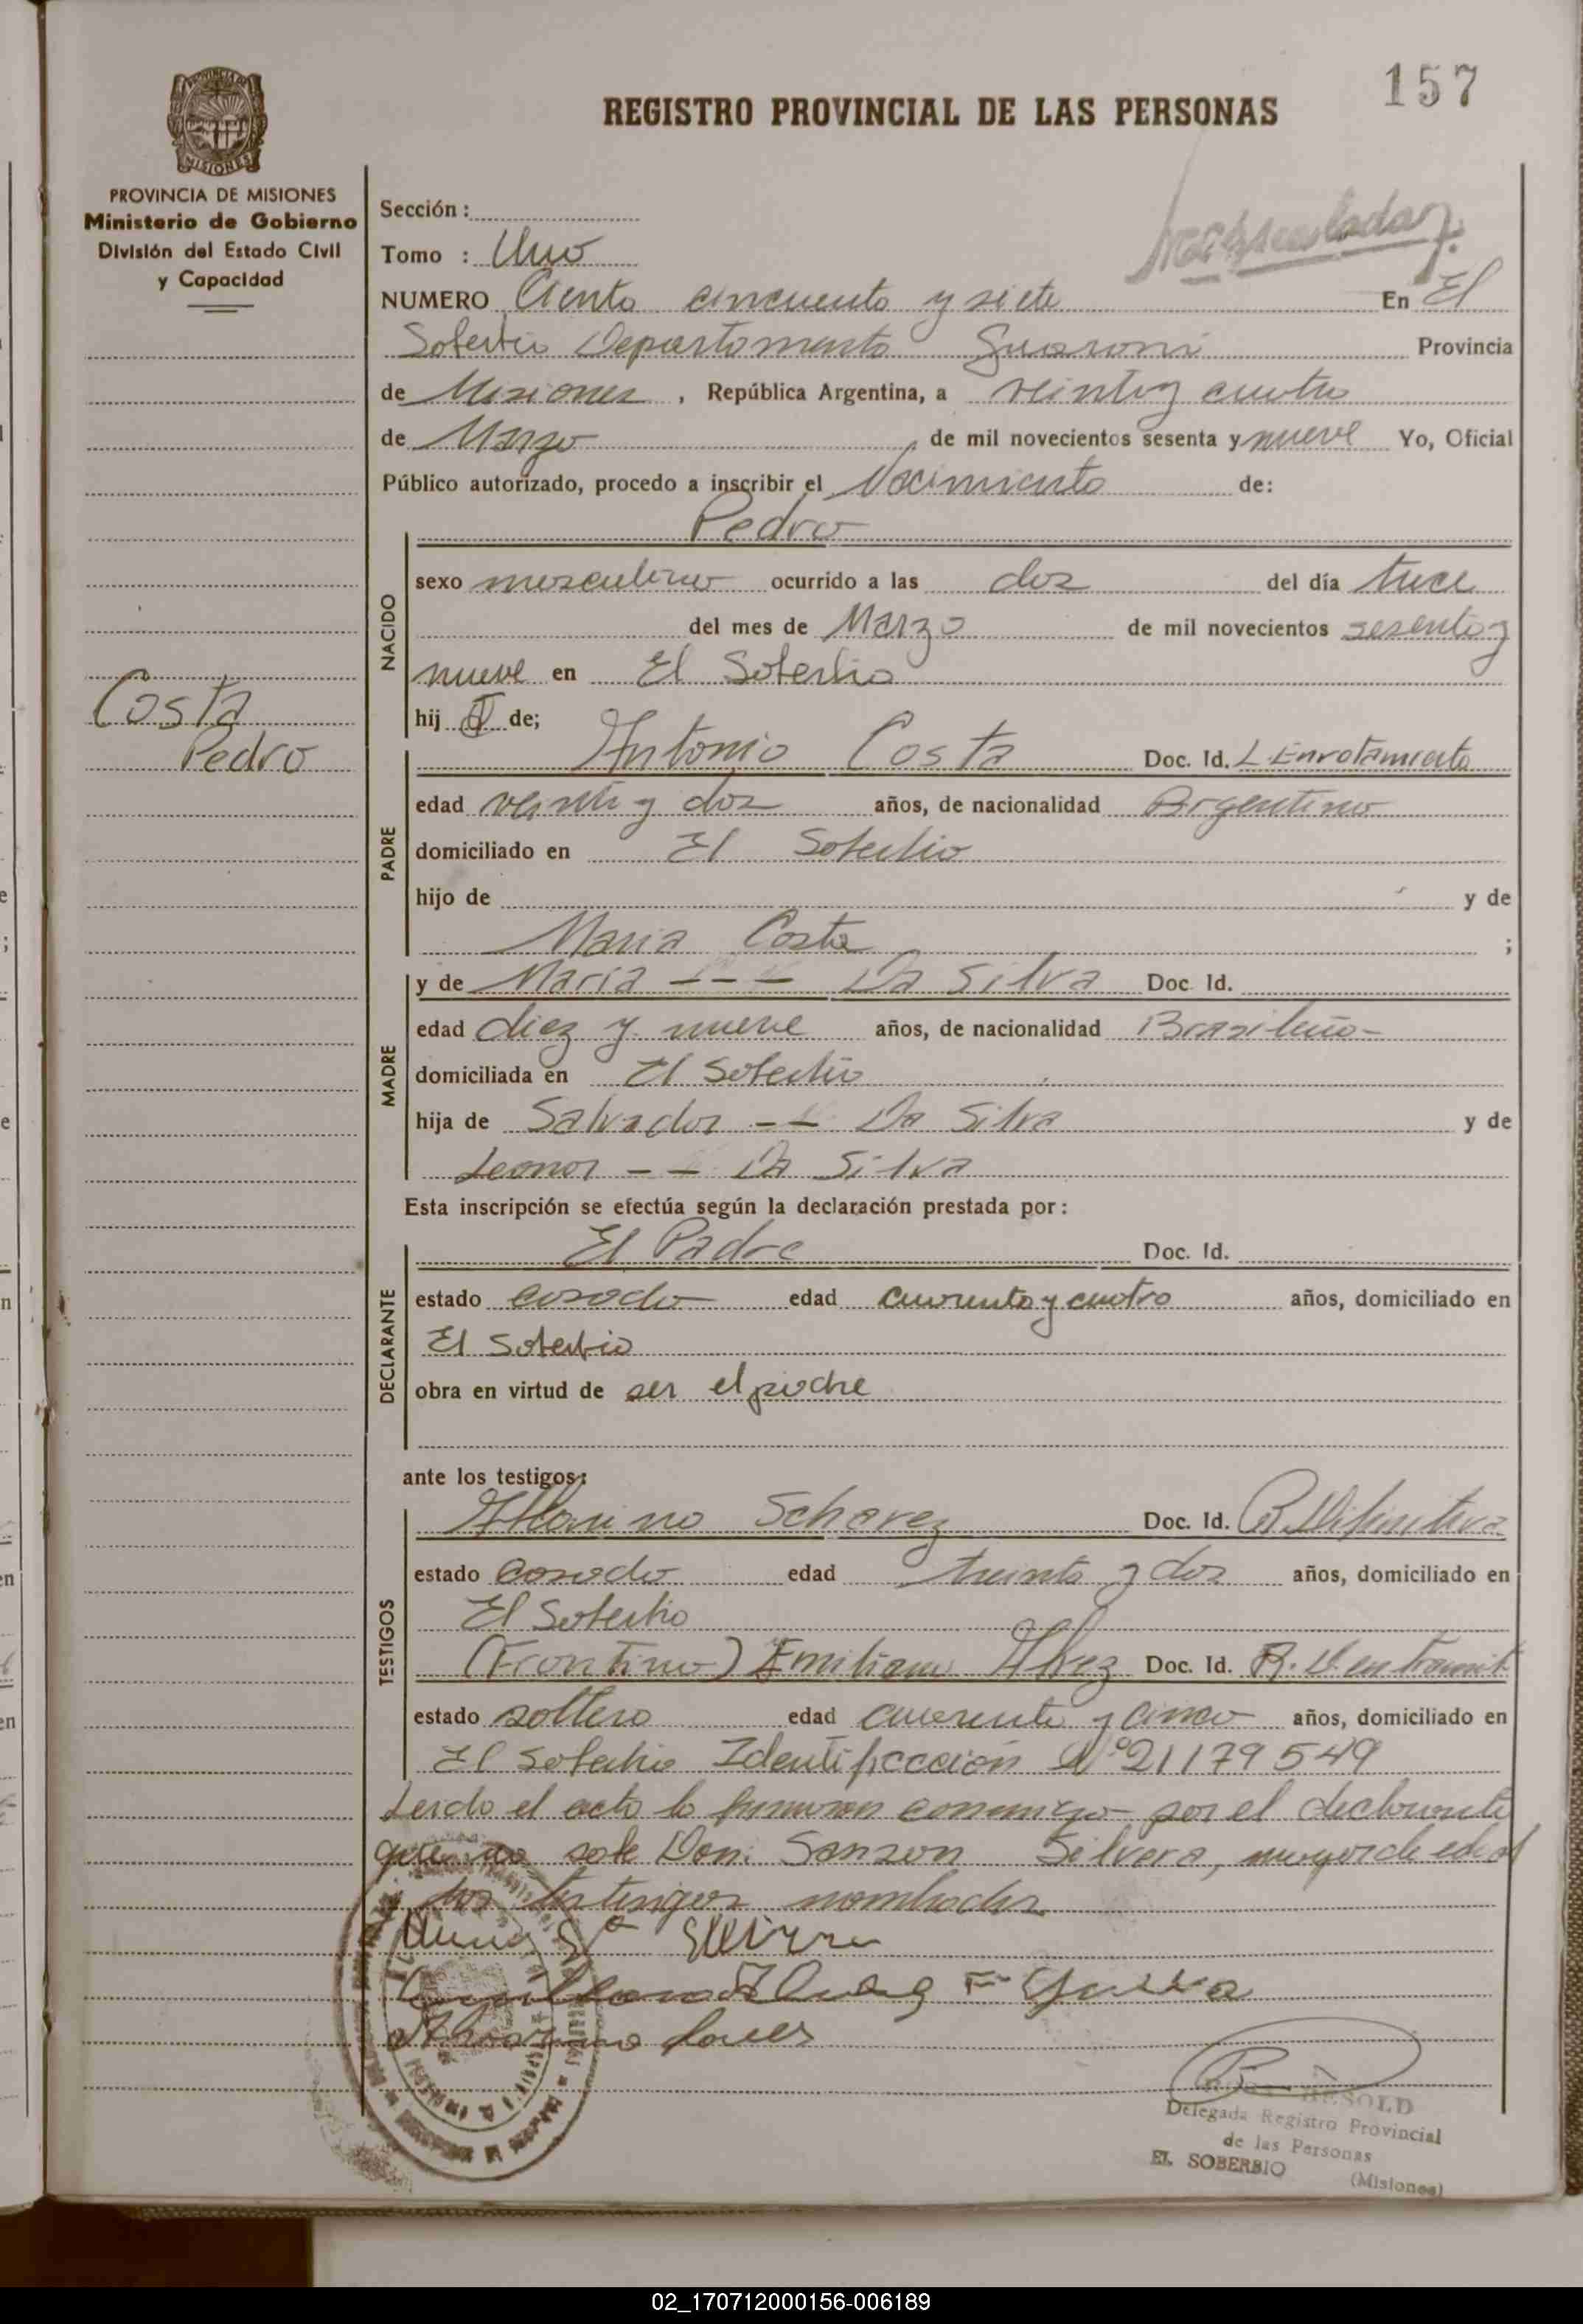 157
REGISTRO PROVINCIAL DE LAS PERSONAS
PROVINCIA DE MISIONES
Ministerio de Gobierno
División del Estado Civil
y Capacidad
Sección :
Tomo : Uno
NUMERO Ciento cincuenta y siete En El
Soberbio Departamento Guaraní Provincia
de Misiones , República Argentina, a veinti y cuatro
de Marzo de mil novecientos sesenta y nueve Yo, Oficial
Público autorizado, procedo a inscribir el Nacimiento de:
Pedro
NACIDO
sexo masculino ocurrido a las dos del día trece
del mes de Marzo de mil novecientos sesenta y
nueve en El Soberbio
hij o de;
Costa
Pedro
Antonio Costa Doc. Id. L. Enrolamiento
PADRE
edad veinti y dos años, de nacionalidad Argentino
domiciliado en El Soberbio
hijo de y de
Maria Costa ;
y de Maria --- Da Silva Doc. Id.
MADRE
edad diez y nueve años, de nacionalidad Brasileño-
domiciliada en El Soberbio
hija de Salvador -- Da Silva y de
Leonor -- Da Silva
Esta inscripción se efectúa según la declaración prestada por:
El Padre Doc. Id.
DECLARANTE
estado casado edad cuarenta y cuatro años, domiciliado en
El Soberbio
obra en virtud de ser el padre
ante los testigos:
Albarino Schavez Doc. Id.
TESTIGOS
estado casado edad treinta y dos años, domiciliado en
El Soberbio
(Frontino) Emiliano Alvez Doc. Id. R. D. en tramit
estado soltero edad cuarenta y cinco años, domiciliado en
El Soberbio Identificación Nº 21179549
Leido el acta lo firmaron conmigo por el declarante
que no sabe Don: Sanzon Silvera, mayor de edad
y los testigos nombrados
BESOLD
Delegada Registro Provincial
de las Personas
EL SOBERBIO (Misiones)
02_170712000156-006189